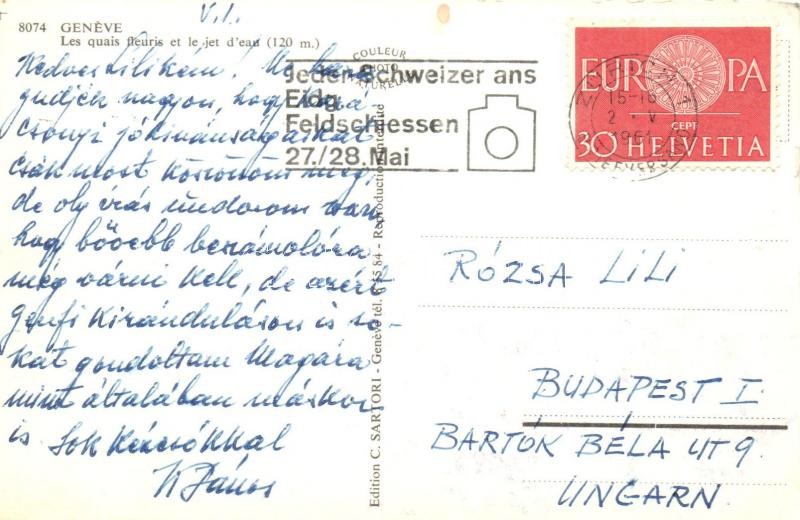 V.1.
8074 GENÈVE
Les quais fleuris et le jet d'eau (120 m.)
Kedves Lilikém! Ne
gudjék nagyon, hogy kará-
csonyi jókivánságaikat
csak most köszönöm meg,
de oly írás undorom van,
hogy bővebb beszámolóra
még várni kell, de azért
genfi kirándulásom is so-
kat gondoltam Magára
mint általában máskor
is Sok kézcsókkal
János
COULEUR
PHOTO
NATURELLE
Jeder Schweizer ans
Eidg.
Feldschiessen
27./28. Mai
EUROPA
CEPT
30 HELVETIA
15-16
2.V
1961
Edition C. SARTORI - Genève tél. 6 55 84 - Reproduction interdite
RÓZSA LILI
BUDAPEST I.
BARTÓK BÉLA UT 9.
UNGARN